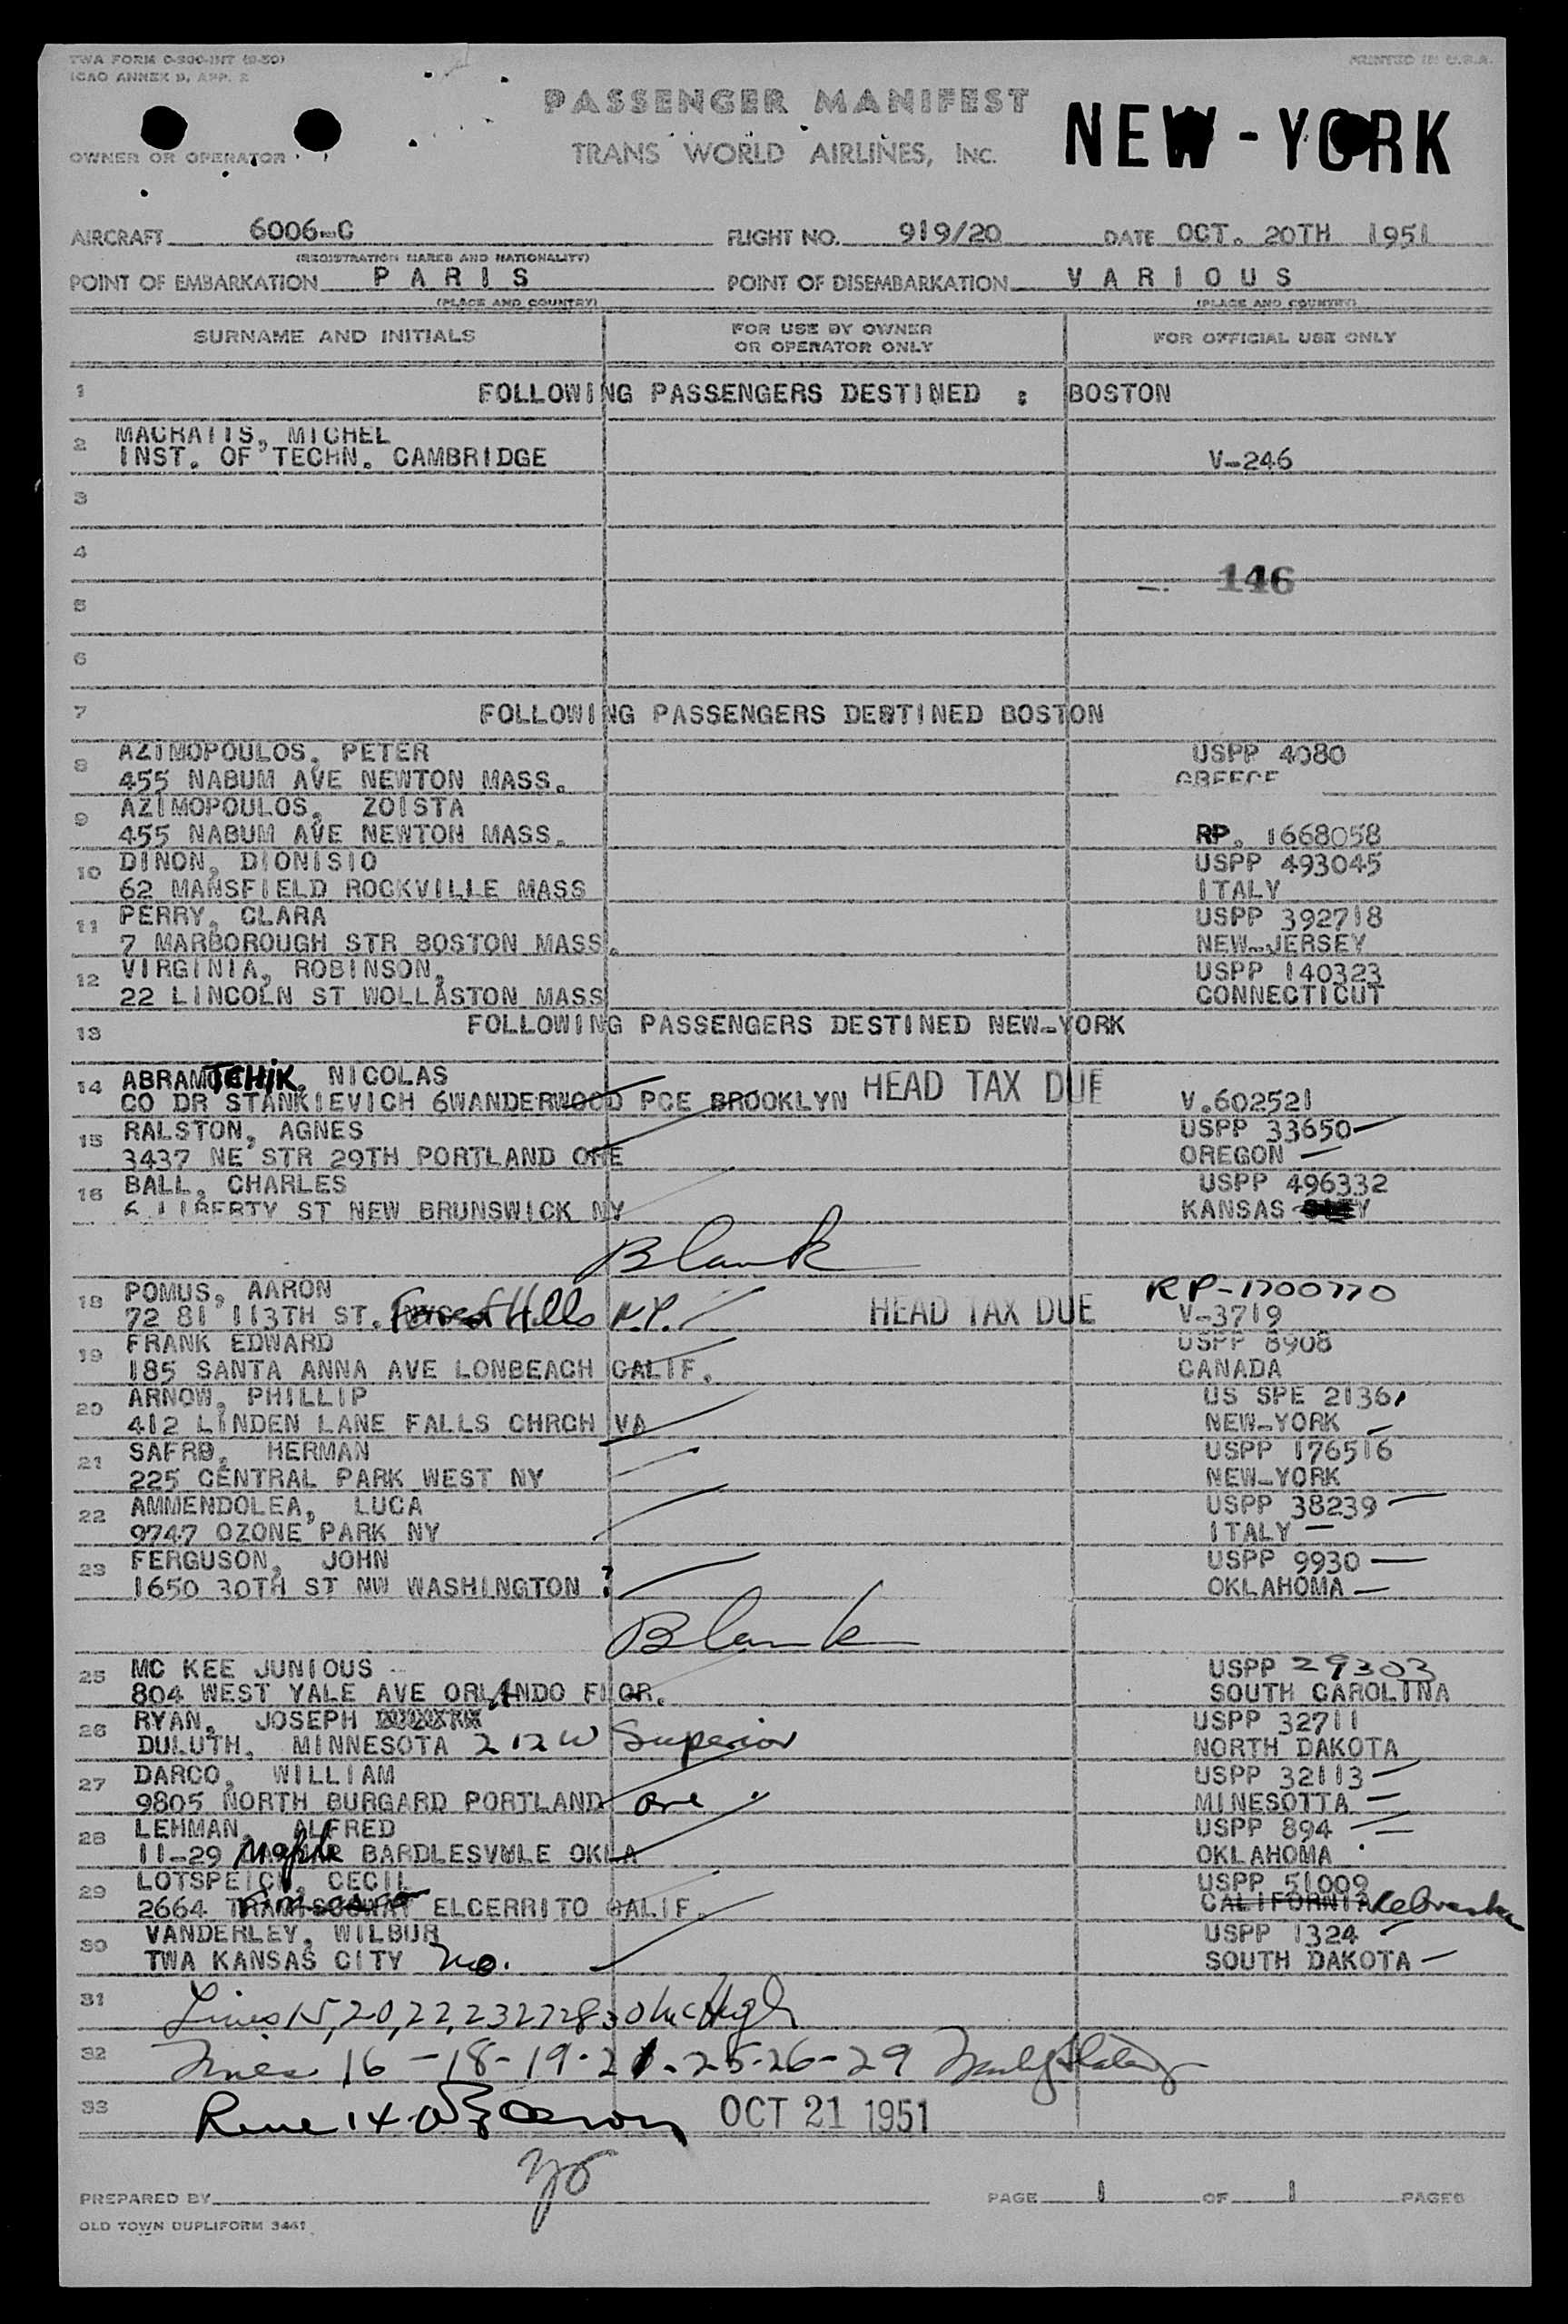 TWA FORM O-300-INT (9-50)
ICAO ANNEX 9, APP. 2
PRINTED IN U.S.A.
PASSENGER MANIFEST
NEW-YORK
OWNER OR OPERATOR
TRANS WORLD AIRLINES, INC.
AIRCRAFT 6006-C FLIGHT NO. 919/20 DATE OCT. 20TH 1951
(REGISTRATION MARKS AND NATIONALITY)
POINT OF EMBARKATION PARIS POINT OF DISEMBARKATION VARIOUS
(PLACE AND COUNTRY) (PLACE AND COUNTRY)
SURNAME AND INITIALS FOR USE BY OWNER OR OPERATOR ONLY FOR OFFICIAL USE ONLY
1 FOLLOWING PASSENGERS DESTINED : BOSTON
2 MACRAITS, MICHEL
INST. OF TECHN. CAMBRIDGE V-246
3
4
146
5
6
7 FOLLOWING PASSENGERS DESTINED BOSTON
8 AZIMOPOULOS, PETER USPP 4080
455 NABUM AVE NEWTON MASS. GREECE
9 AZIMOPOULOS, ZOISTA
455 NABUM AVE NEWTON MASS. RP. 1668058
10 DINON, DIONISIO USPP 493045
62 MANSFIELD ROCKVILLE MASS ITALY
11 PERRY, CLARA USPP 392718
7 MARBOROUGH STR BOSTON MASS. NEW-JERSEY
12 VIRGINIA, ROBINSON, USPP 140323
22 LINCOLN ST WOLLASTON MASS CONNECTICUT
13 FOLLOWING PASSENGERS DESTINED NEW-YORK
14 ABRAMTCHIK, NICOLAS HEAD TAX DUE
CO DR STANKIEVICH 6WANDERWOOD PCE BROOKLYN V.602521
15 RALSTON, AGNES USPP 33650
3437 NE STR 29TH PORTLAND ORE OREGON
16 BALL, CHARLES USPP 496332
6 LIBERTY ST NEW BRUNSWICK NY KANSAS
Blank
18 POMUS, AARON RP-1700770
72 81 113TH ST. Forest Hills N.Y. HEAD TAX DUE V-3719
19 FRANK EDWARD USPP 8908
185 SANTA ANNA AVE LONBEACH CALIF. CANADA
20 ARNOW, PHILLIP US SPE 2136
412 LINDEN LANE FALLS CHRCH VA NEW-YORK
21 SAFRO, HERMAN USPP 176516
225 CENTRAL PARK WEST NY NEW-YORK
22 AMMENDOLEA, LUCA USPP 38239
9747 OZONE PARK NY ITALY
23 FERGUSON, JOHN USPP 9930
1650 30TH ST NW WASHINGTON OKLAHOMA
Blank
25 MC KEE JUNIOUS USPP 29303
804 WEST YALE AVE ORLANDO FLOR. SOUTH CAROLINA
26 RYAN, JOSEPH USPP 32711
DULUTH, MINNESOTA 212 W Superior NORTH DAKOTA
27 DARCO, WILLIAM USPP 32113
9805 NORTH BURGARD PORTLAND Ore MINESOTTA
28 LEHMAN, ALFRED USPP 894
11-29 Maple BARDLESVILLE OKLA OKLAHOMA
29 LOTSPEICH, CECIL USPP 51009
2664 ELCERRITO CALIF. CALIFORNIA Nebraska
30 VANDERLEY, WILBUR USPP 1324
TWA KANSAS CITY Mo. SOUTH DAKOTA
31 Lines 15, 20, 22, 23 27 28 30 McHugh
32 Lines 16-18-19-21-25-26-29
33 14 OCT 21 1951
PREPARED BY PAGE 1 OF 1 PAGES
OLD TOWN DUPLIFORM 3461